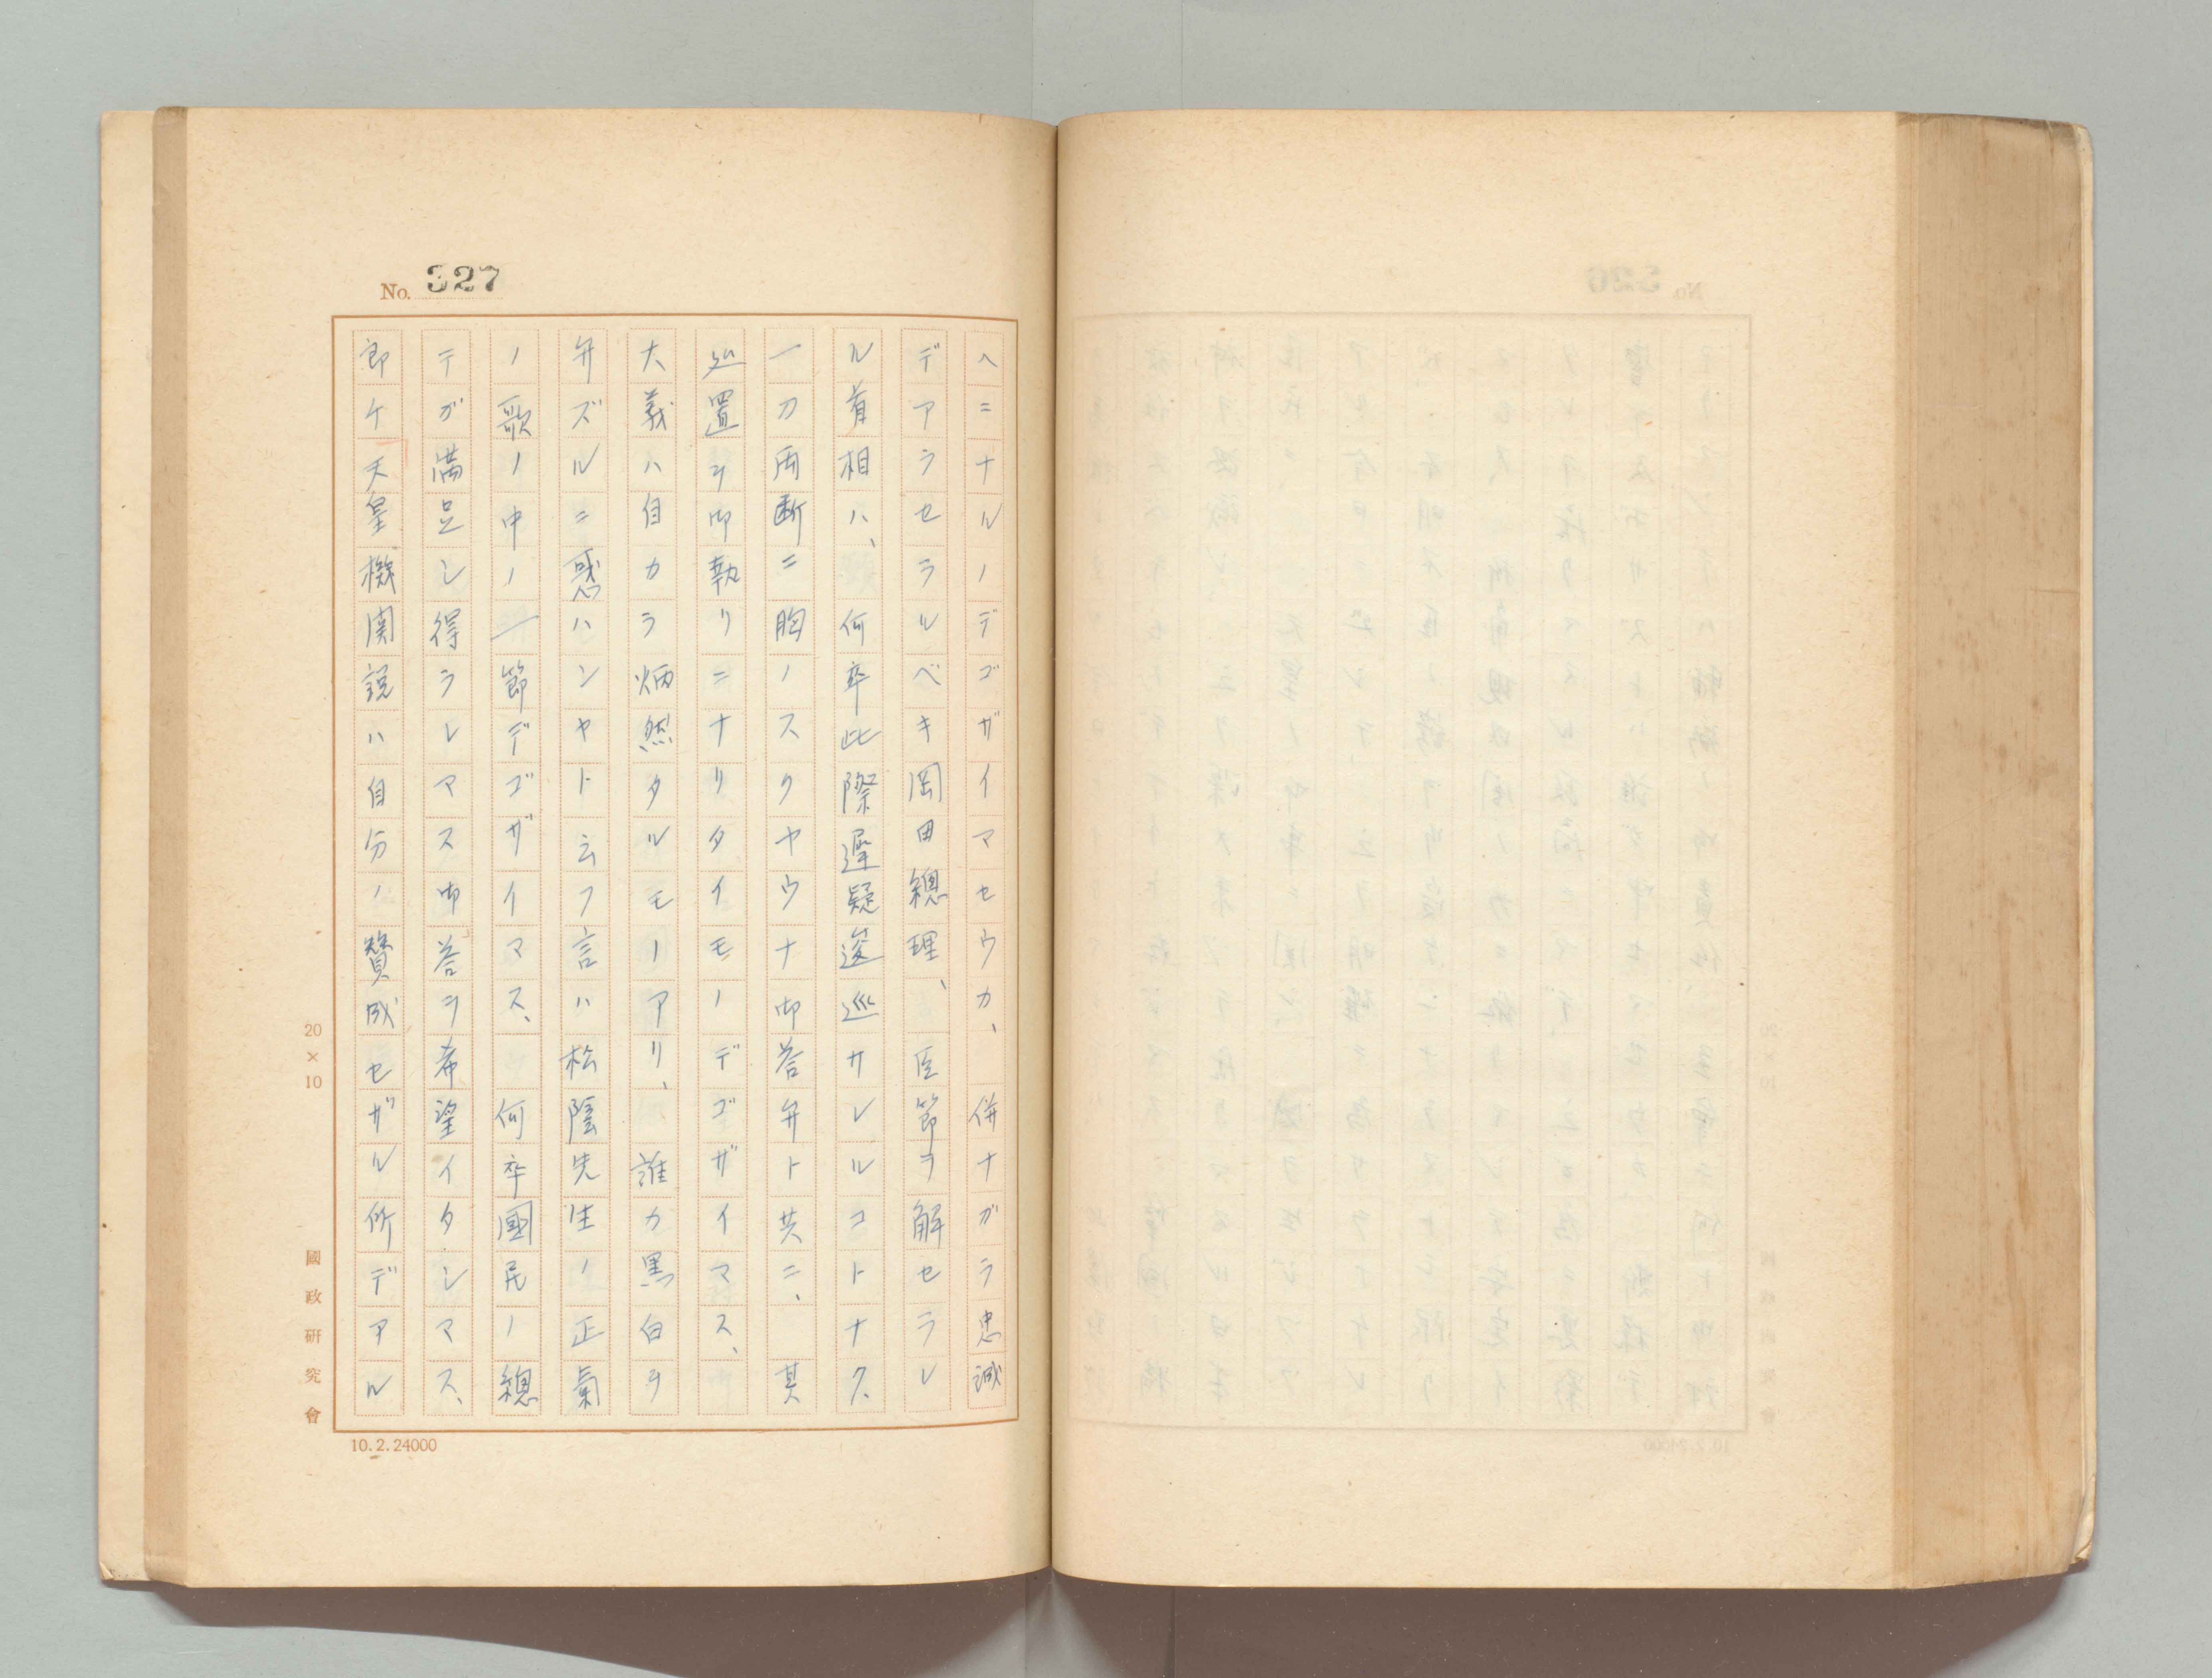 No. 327
ヘニナルノデゴザイマセウカ、併ナガラ忠誠
デアラセラルベキ岡田總理、臣節ヲ解セラレ
ル首相ハ、何卒此際遲疑逡巡サレルコトナク、
一刀両断ニ胸ノスクヤウナ御答弁ト共ニ、其
処置ヲ御執リニナリタイモノデゴザイマス、
大義ハ自カラ炳然タルモノアリ、誰カ黒白ヲ
弁ズルニ惑ハンヤト云フ言ハ松陰先生ノ正氣
ノ歌ノ中ノ一節デゴザイマス、何卒國民ノ總
テガ満足シ得ラレマス御答ヲ希望イタシマス、
郎ケ天皇機関説ハ自分ノ賛成セザル所デアル
20×10
國政研究會
10.2.24000